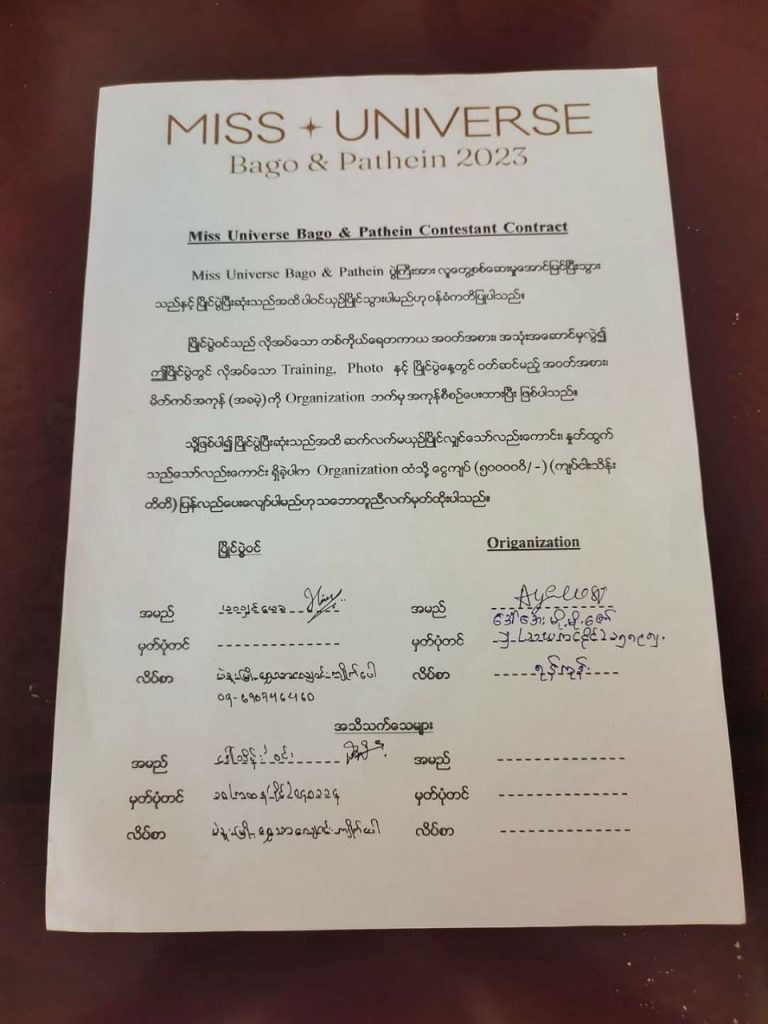 MISS UNIVERSE
Bago & Pathein 2023
Miss Universe Bago & Pathein Contestant Contract
Miss Universe Bago & Pathein ပွဲကြီးအား လူတွေ့စစ်ဆေးမှုအောင်မြင်ပြီးသွား
သည်နှင့် ပြိုင်ပွဲပြီးဆုံးသည်အထိ ပါဝင်ယှဉ်ပြိုင်သွားပါမည်ဟု ဝန်ခံကတိပြုပါသည်။
ပြိုင်ပွဲဝင်သည် လိုအပ်သော တစ်ကိုယ်ရေတကာယ အဝတ်အစား၊ အသုံးအဆောင်မှလွဲ၍
ဤပြိုင်ပွဲတွင် လိုအပ်သော Training, Photo နှင့် ပြိုင်ပွဲနေ့တွင် ဝတ်ဆင်မည့် အဝတ်အစား၊
မိတ်ကပ်အကုန် (အခမဲ့) ကို Organization ဘက်မှ အကုန်စီစဉ်ပေးထားပြီး ဖြစ်ပါသည်။
သို့ဖြစ်ပါ၍ ပြိုင်ပွဲပြီးဆုံးသည်အထိ ဆက်လက်မယှဉ်ပြိုင်လျှင်သော်လည်းကောင်း၊ နှုတ်ထွက်
သည်သော်လည်းကောင်း ရှိခဲ့ပါက Organization ထံသို့ ငွေကျပ် (၅၀၀၀၀ဝိ/-) (ကျပ်ငါးသိန်း
တိတိ) ပြန်လည်ပေးလျော်ပါမည်ဟု သဘောတူညီလက်မှတ်ထိုးပါသည်။
ပြိုင်ပွဲဝင် Origanization
အမည် အမည်
ဒေါ်အေးမို့မို့ဇော်
မှတ်ပုံတင် မှတ်ပုံတင်
လိပ်စာ လိပ်စာ
အသိသက်သေများ
အမည် ဒေါ်သိန်းဝင်း အမည်
မှတ်ပုံတင် မှတ်ပုံတင်
လိပ်စာ လိပ်စာ